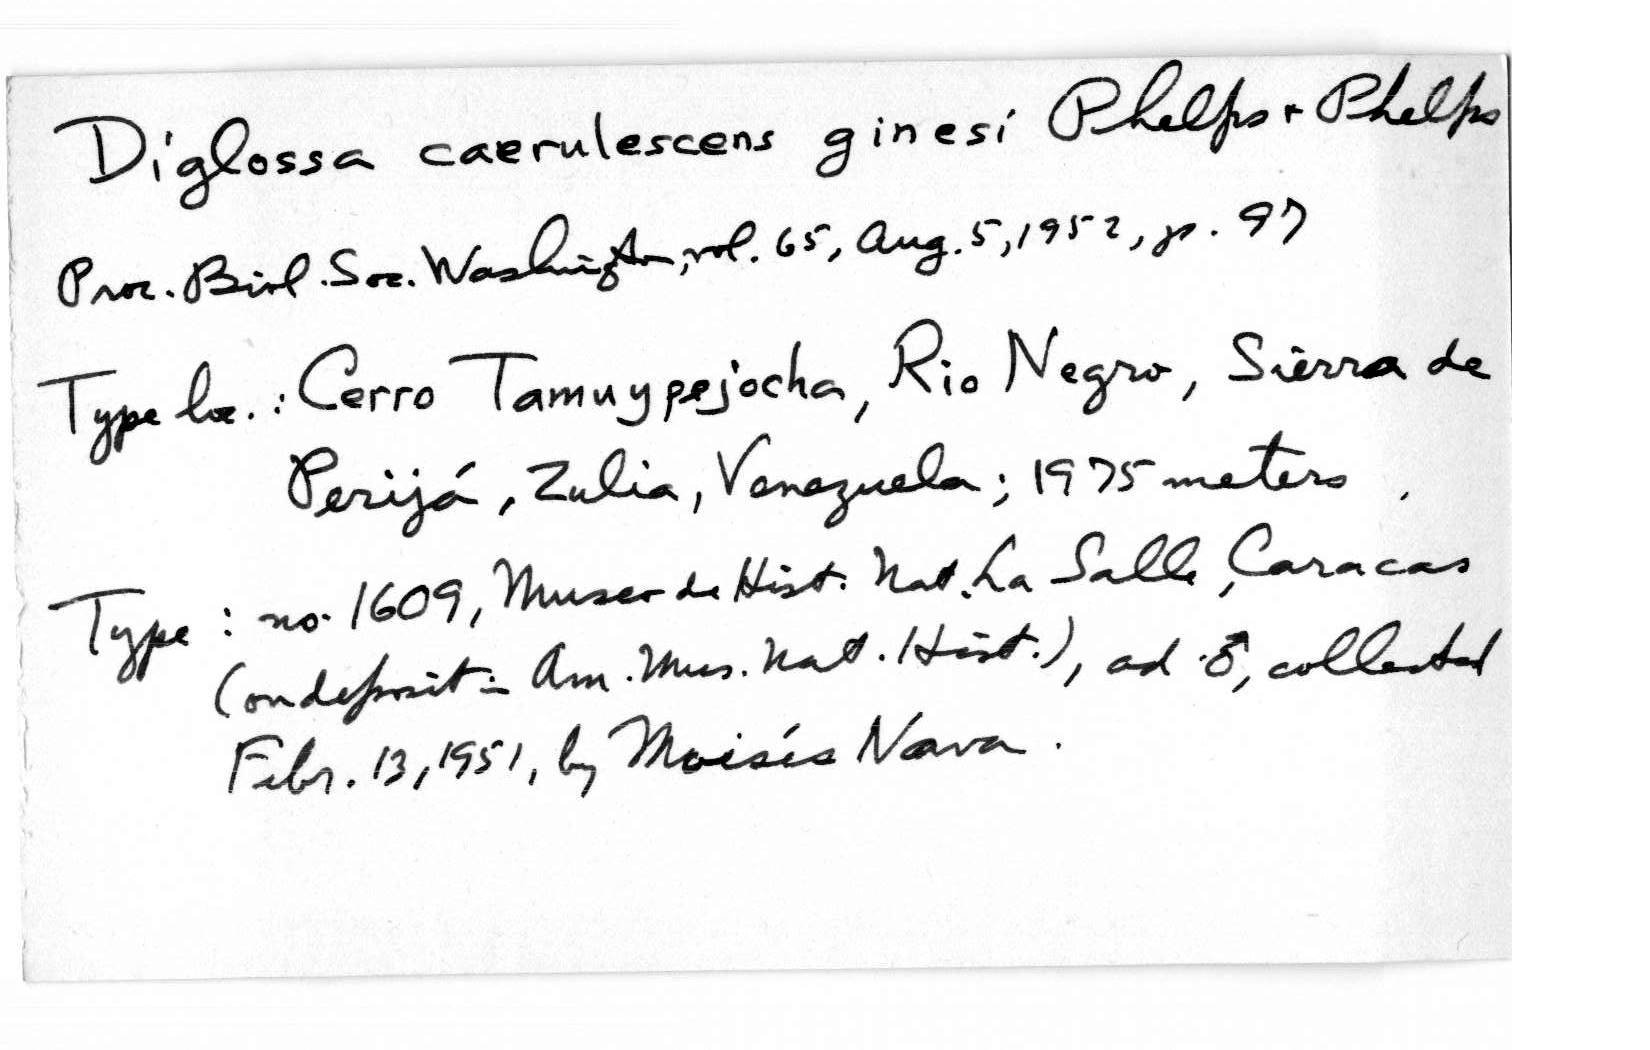 Diglossa caerulescens ginesi Phelps + Phelps
Proc. Biol. Soc. Washington, vol. 65, Aug. 5, 1952, p. 97
Type loc.: Cerro Tamuypejocha, Rio Negro, Sierra de
Perijá, Zulia, Venezuela; 1975 meters.
Type: no. 1609, Museo de Hist. Nat. La Salle, Caracas
(on deposit in Am. Mus. Nat. Hist.), ad ♂, collected
Febr. 13, 1951, by Moisés Nava.